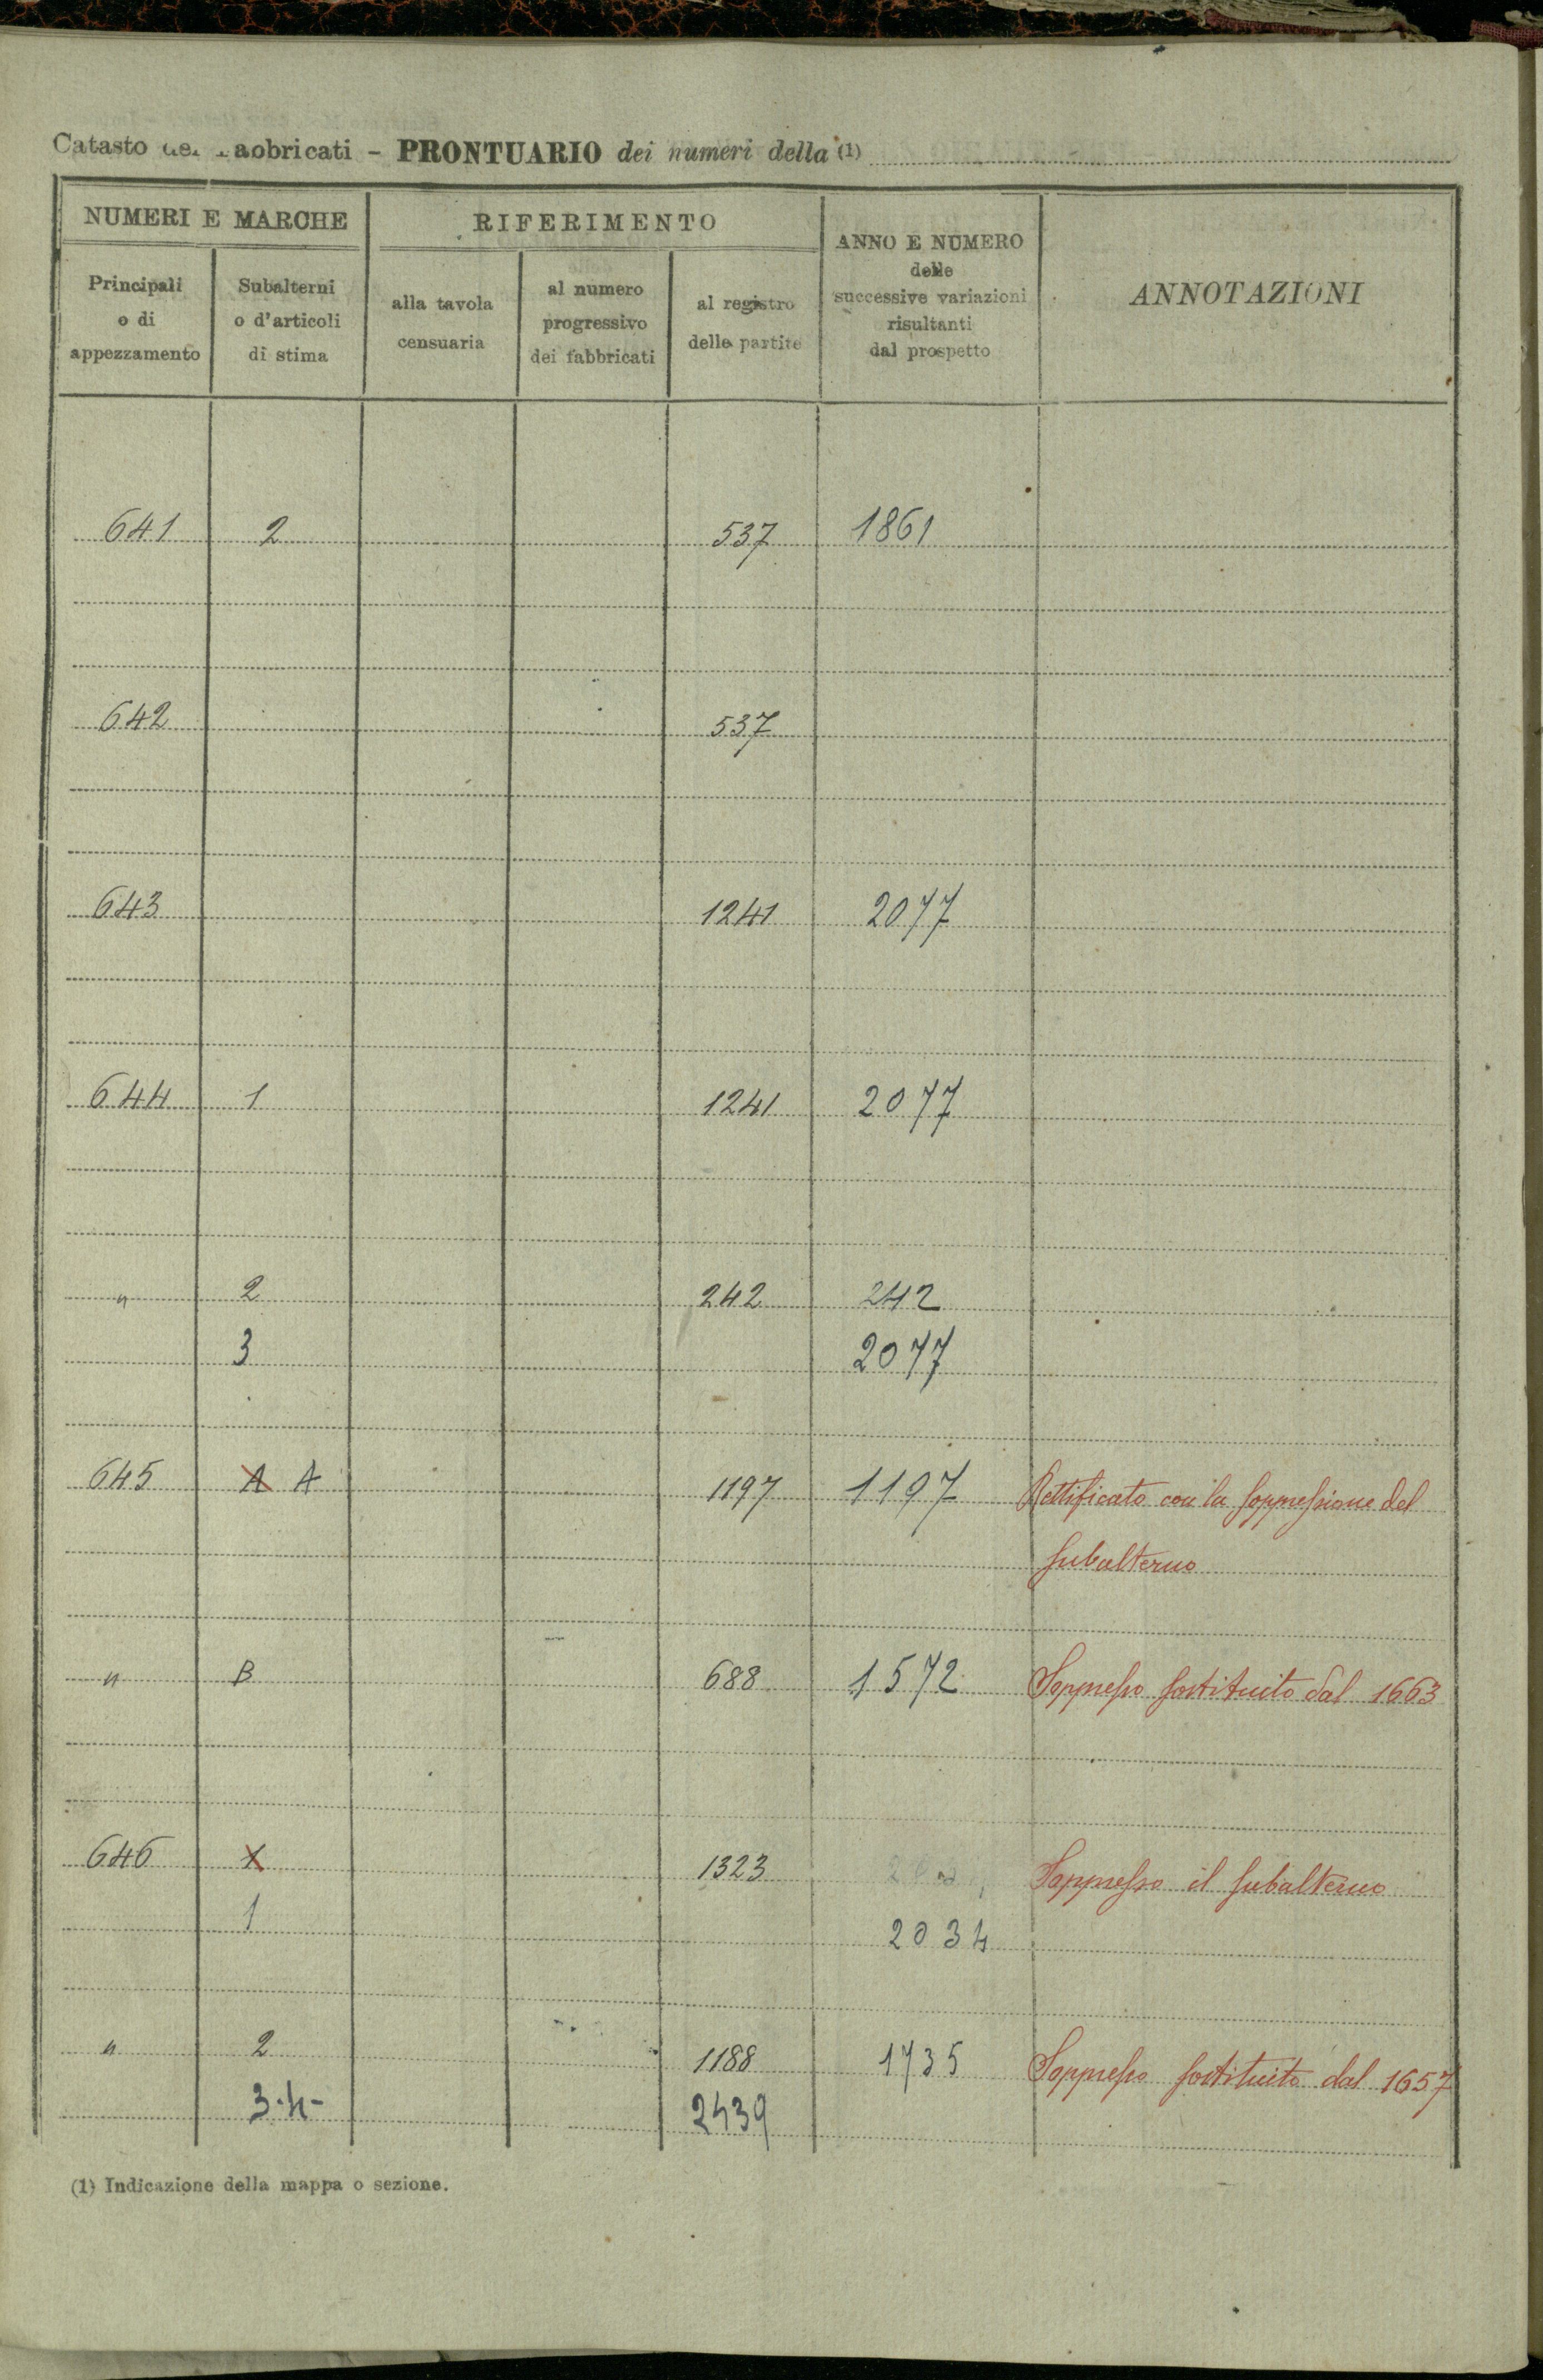 Catasto dei Fabbricati - PRONTUARIO dei numeri della (1)
NUMERI E MARCHE
RIFERIMENTO
ANNO E NUMERO
delle
successive variazioni
risultanti
dal prospetto
ANNOTAZIONI
Principali
o di
appezzamento
Subalterni
o d'articoli
di stima
alla tavola
censuaria
al numero
progressivo
dei fabbricati
al registro
delle partite
641 2 537 1861
642 537
643 1241 2077
644 1 1241 2077
" 2 242 242
3 2077
645 A A 1197 1197 Rettificato con la soppressione del
subalterno
" B 688 1572 Soppresso sostituito dal 1663
646 1323 Soppresso il subalterno
1 2034
" 2 1188 1735 Soppresso sostituito dal 1657
3-4- 2439
(1) Indicazione della mappa o sezione.